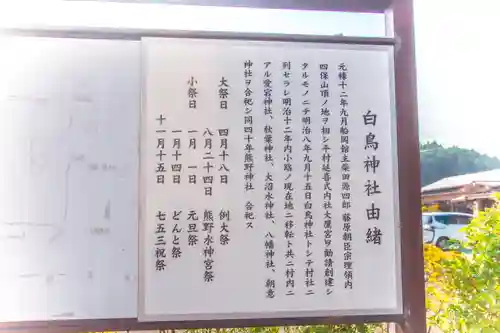 白鳥神社由緒
元禄十二年九月船岡館主柴田源四郎 藤原朝臣宗理領内
四保山頂ノ地ヲ相シ千村延喜式内社大鷹宮ヲ勧請創建シ
タルモノニテ明治八年九月十五日白鳥神社トシテ村社ニ
列セラレ明治十二年内小路ノ現在地ニ移転ト共ニ村内ニ
アル愛宕神社、秋葉神社、大沼水神社、八幡神社、朝意
神社ヲ合祀シ同四十年熊野神社 合祀ス
大祭日 四月十八日 例大祭
八月二十四日 熊野水神宮祭
小祭日 一月一日 元旦祭
一月十四日 どんと祭
十一月十五日 七五三祝祭